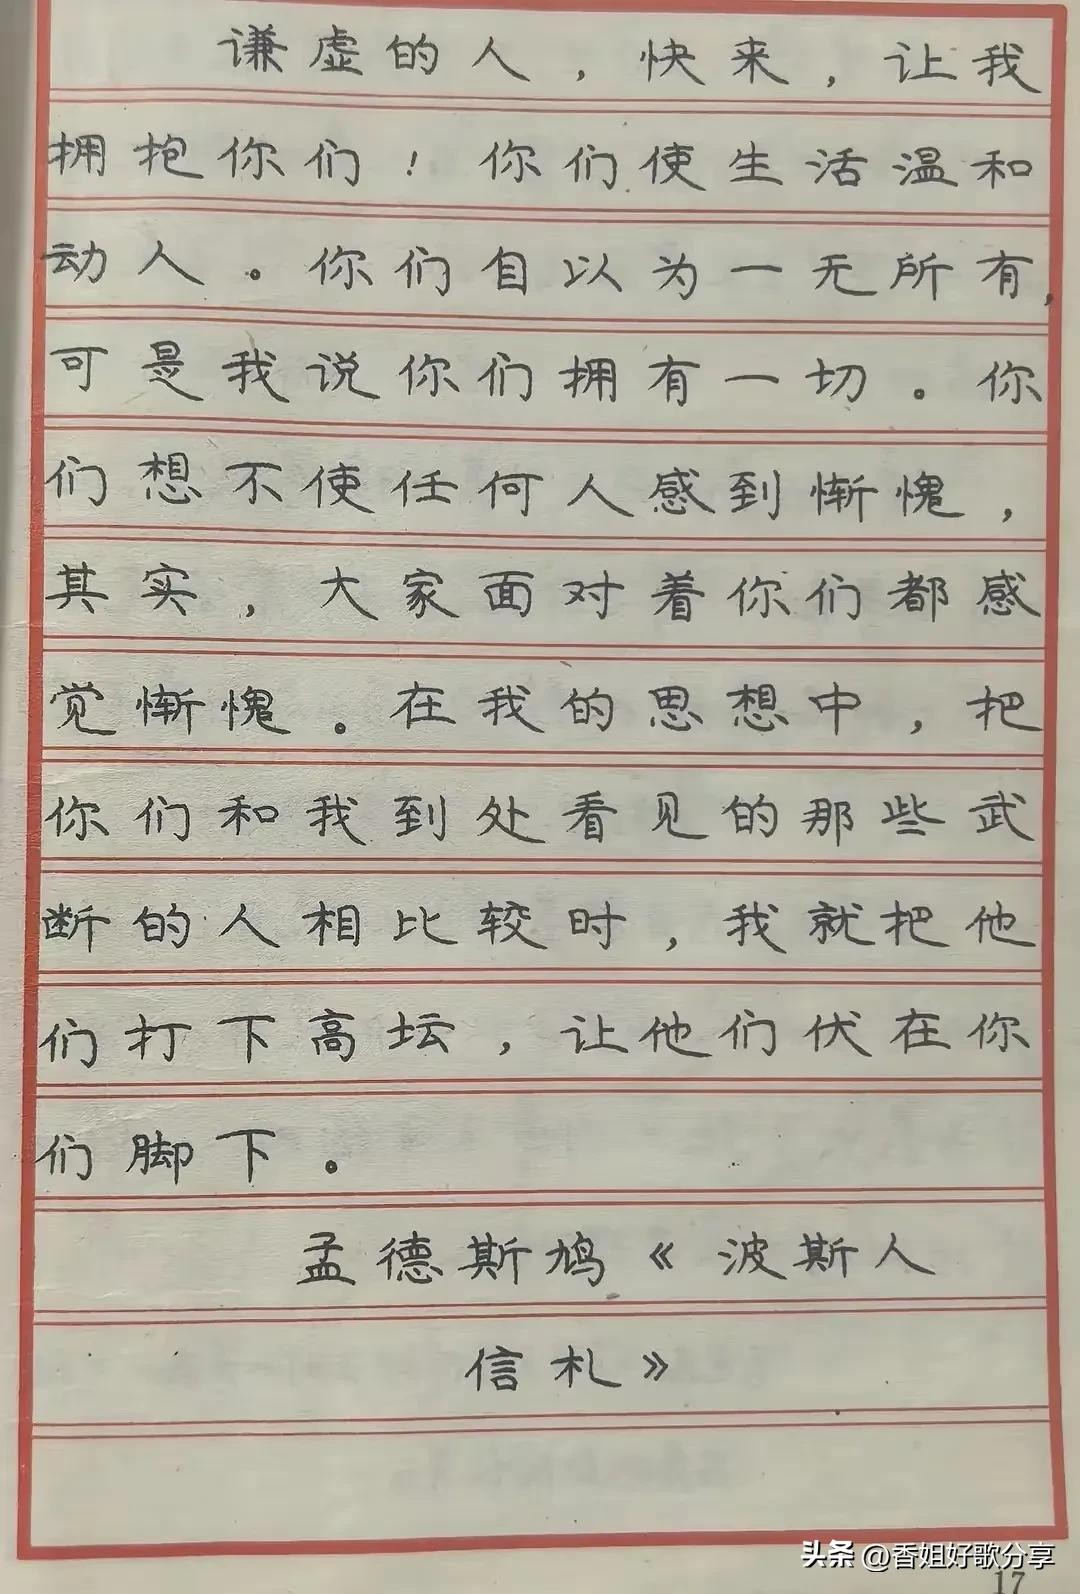 谦虚的人，快来，让我
拥抱你们！你们使生活温和
动人。你们自以为一无所有，
可是我说你们拥有一切。你
们想不使任何人感到惭愧，
其实，大家面对着你们都感
觉惭愧。在我的思想中，把
你们和我到处看见的那些武
断的人相比较时，我就把他
们打下高坛，让他们伏在你
们脚下。
孟德斯鸠《波斯人
信札》
头条 @香姐好歌分享
17